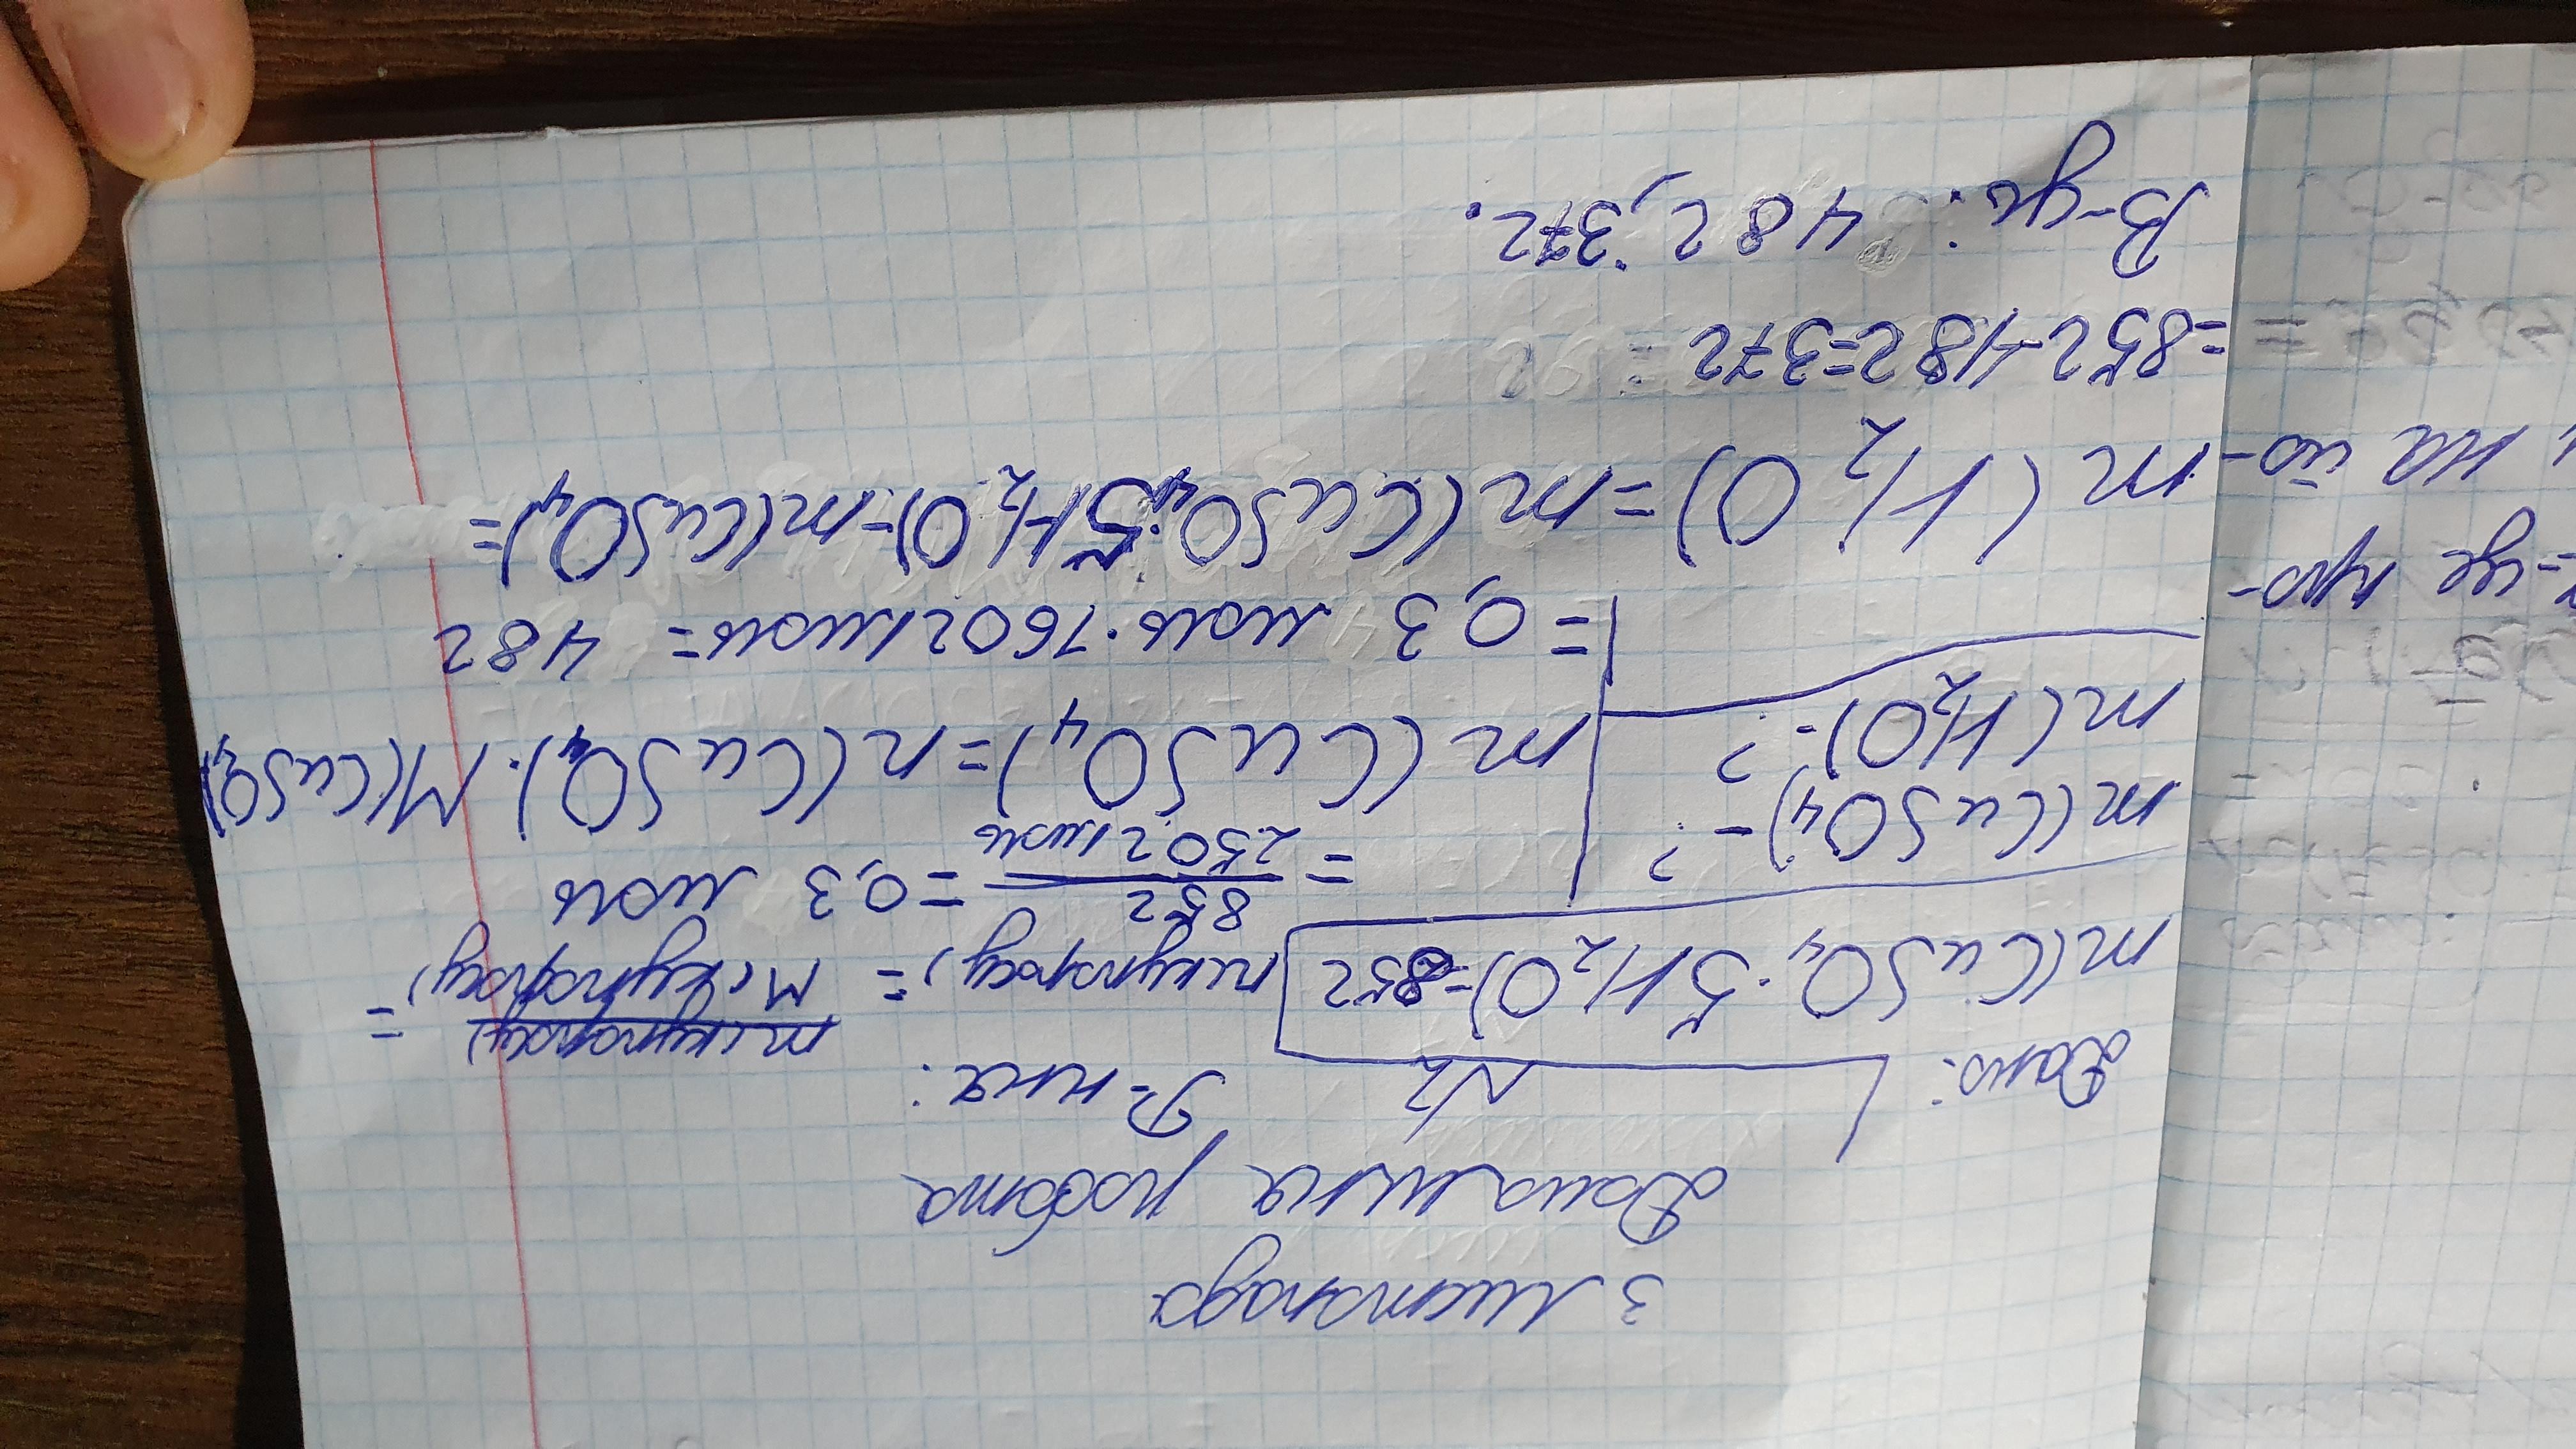 3 листопада
Домашня робота
№2
Дано:
m(CuSO₄·5H₂O)=85г
m(CuSO₄)-?
m(H₂O)-?
Р-ння:
n(купоросу) = m(купоросу)/M(купоросу) =
= 85г/250г/моль = 0,3 моль
m(CuSO₄)=n(CuSO₄)·M(CuSO₄)
=0,3 моль·160г/моль= 48г
m(H₂O)=m(CuSO₄·5H₂O)-m(CuSO₄)=
=85г-48г=37г
В-дь: 48г, 37г.